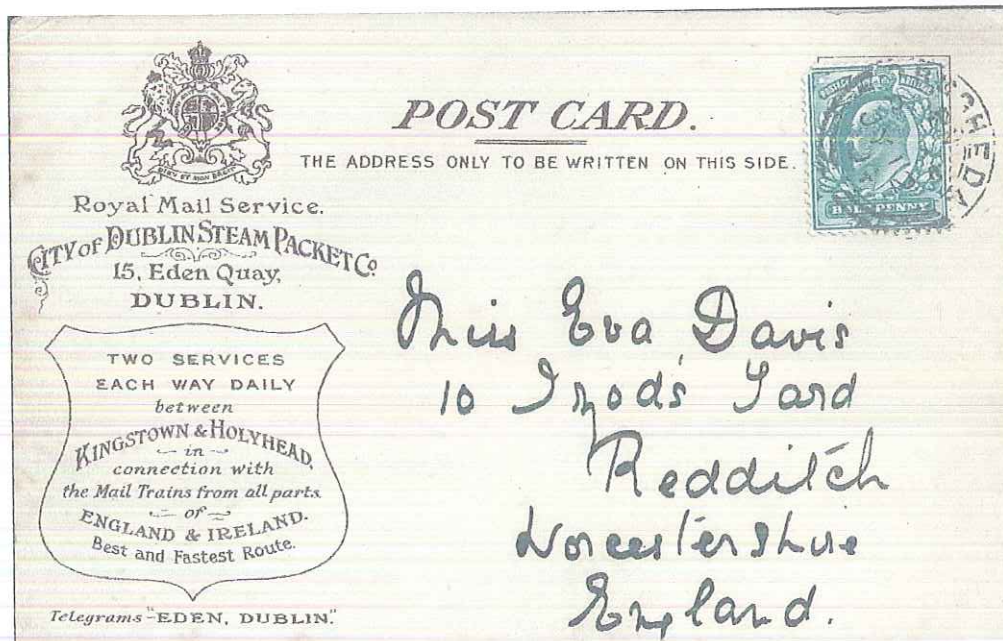 POST CARD.
THE ADDRESS ONLY TO BE WRITTEN ON THIS SIDE.
Royal Mail Service.
CITY OF DUBLIN STEAM PACKET Co
15, Eden Quay,
DUBLIN.
TWO SERVICES
EACH WAY DAILY
between
KINGSTOWN & HOLYHEAD.
in
connection with
the Mail Trains from all parts
of
ENGLAND & IRELAND.
Best and Fastest Route.
Telegrams-"EDEN, DUBLIN."
HALFPENNY
Miss Eva Davis
10 Izod's Yard
Redditch
Worcestershire
England.